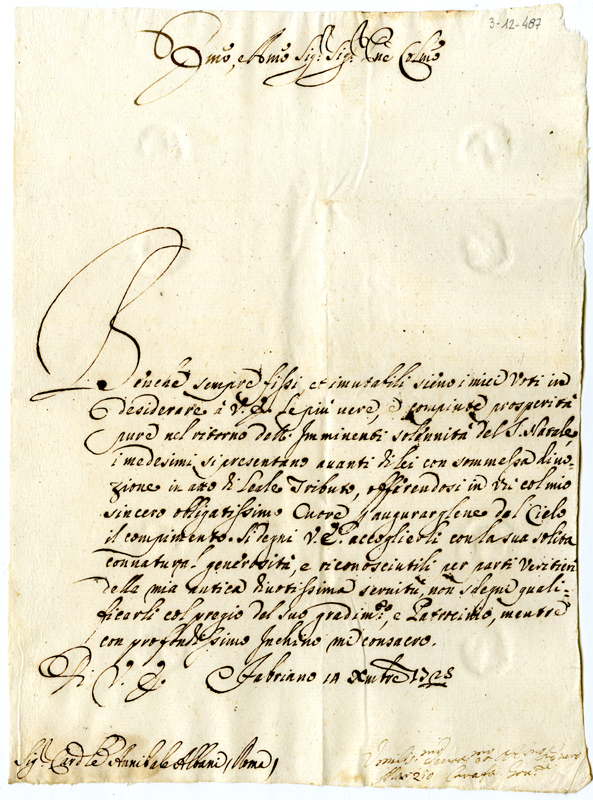 3-12-487
Emo, e Rmo Sig.r Sig.r Pne Colmo
Benche sempre fissi, et imutabili sieno i miei Voti in
desiderare à V. E. le più vere, e compiute prosperità
pure nel ritorno delle Imminenti solennità del S. Natale,
i medesimi si presentano avanti di lei con sommessa divo=
zione in atto di leale Tributo, offerendosi in essi col mio
sincero obligatissimo Cuore p augurarglene dal Cielo
il compimento. Si degni V. E. accoglierli con la sua solita
connatural generosità, e riconosciutili per parti veritieri
della mia antica divotissima servitù, non sdegni quali=
ficarli col pregio del suo gradim.to, e Patrocinio, mentre
con profondissimo Inchino me consacro.
Di V. E. Fabriano 14 Xmbre 1728
Sig.r Card.le Annibale Albani, Roma,
Marzio